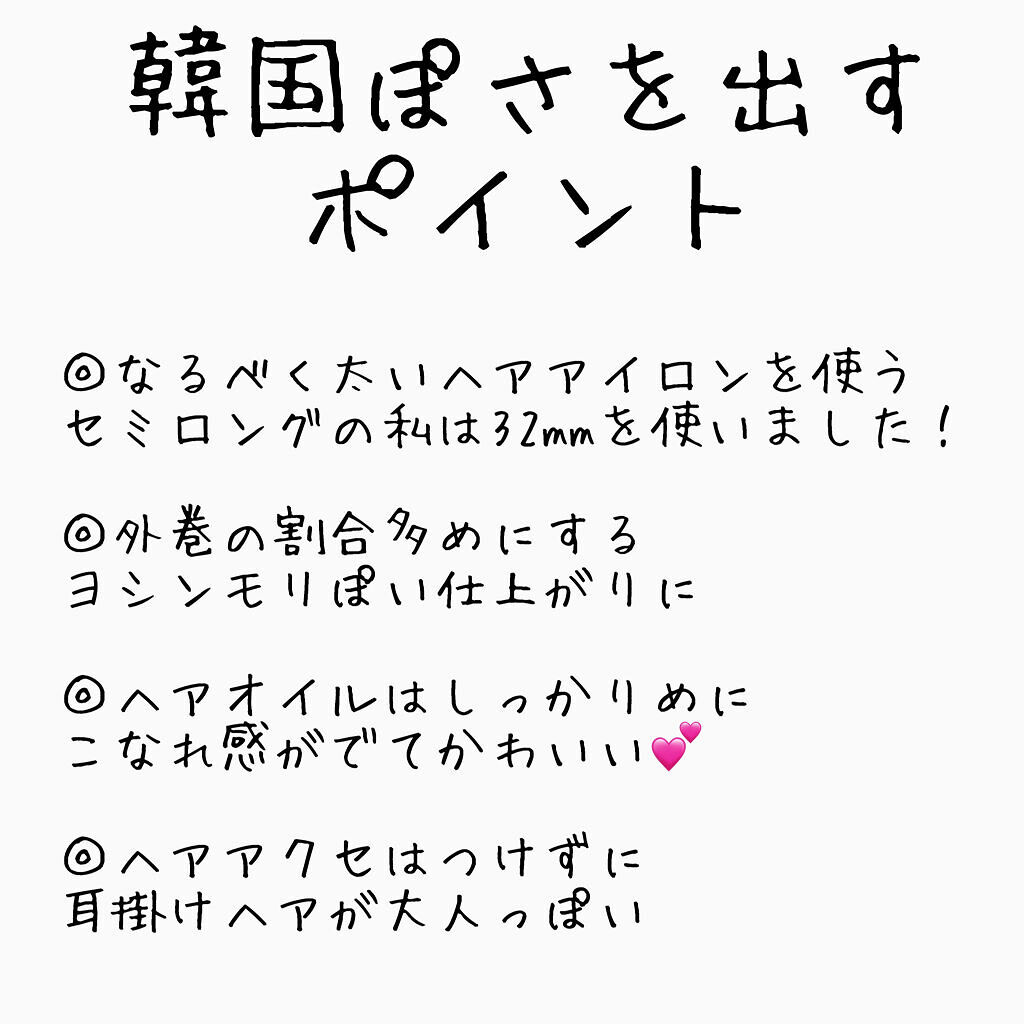 韓国ぽさを出す
ポイント
◎なるべく太いヘアアイロンを使う
セミロングの私は32mmを使いました!
◎外巻の割合多めにする
ヨシンモリぽい仕上がりに
◎ヘアオイルはしっかりめに
こなれ感がでてかわいい💕
◎ヘアアクセはつけずに
耳掛けヘアが大人っぽい